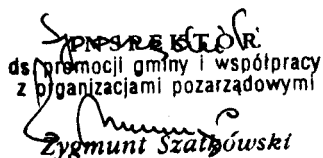 INSPEKTOR
ds promocji gminy i współpracy
z organizacjami pozarządowymi
Zygmunt